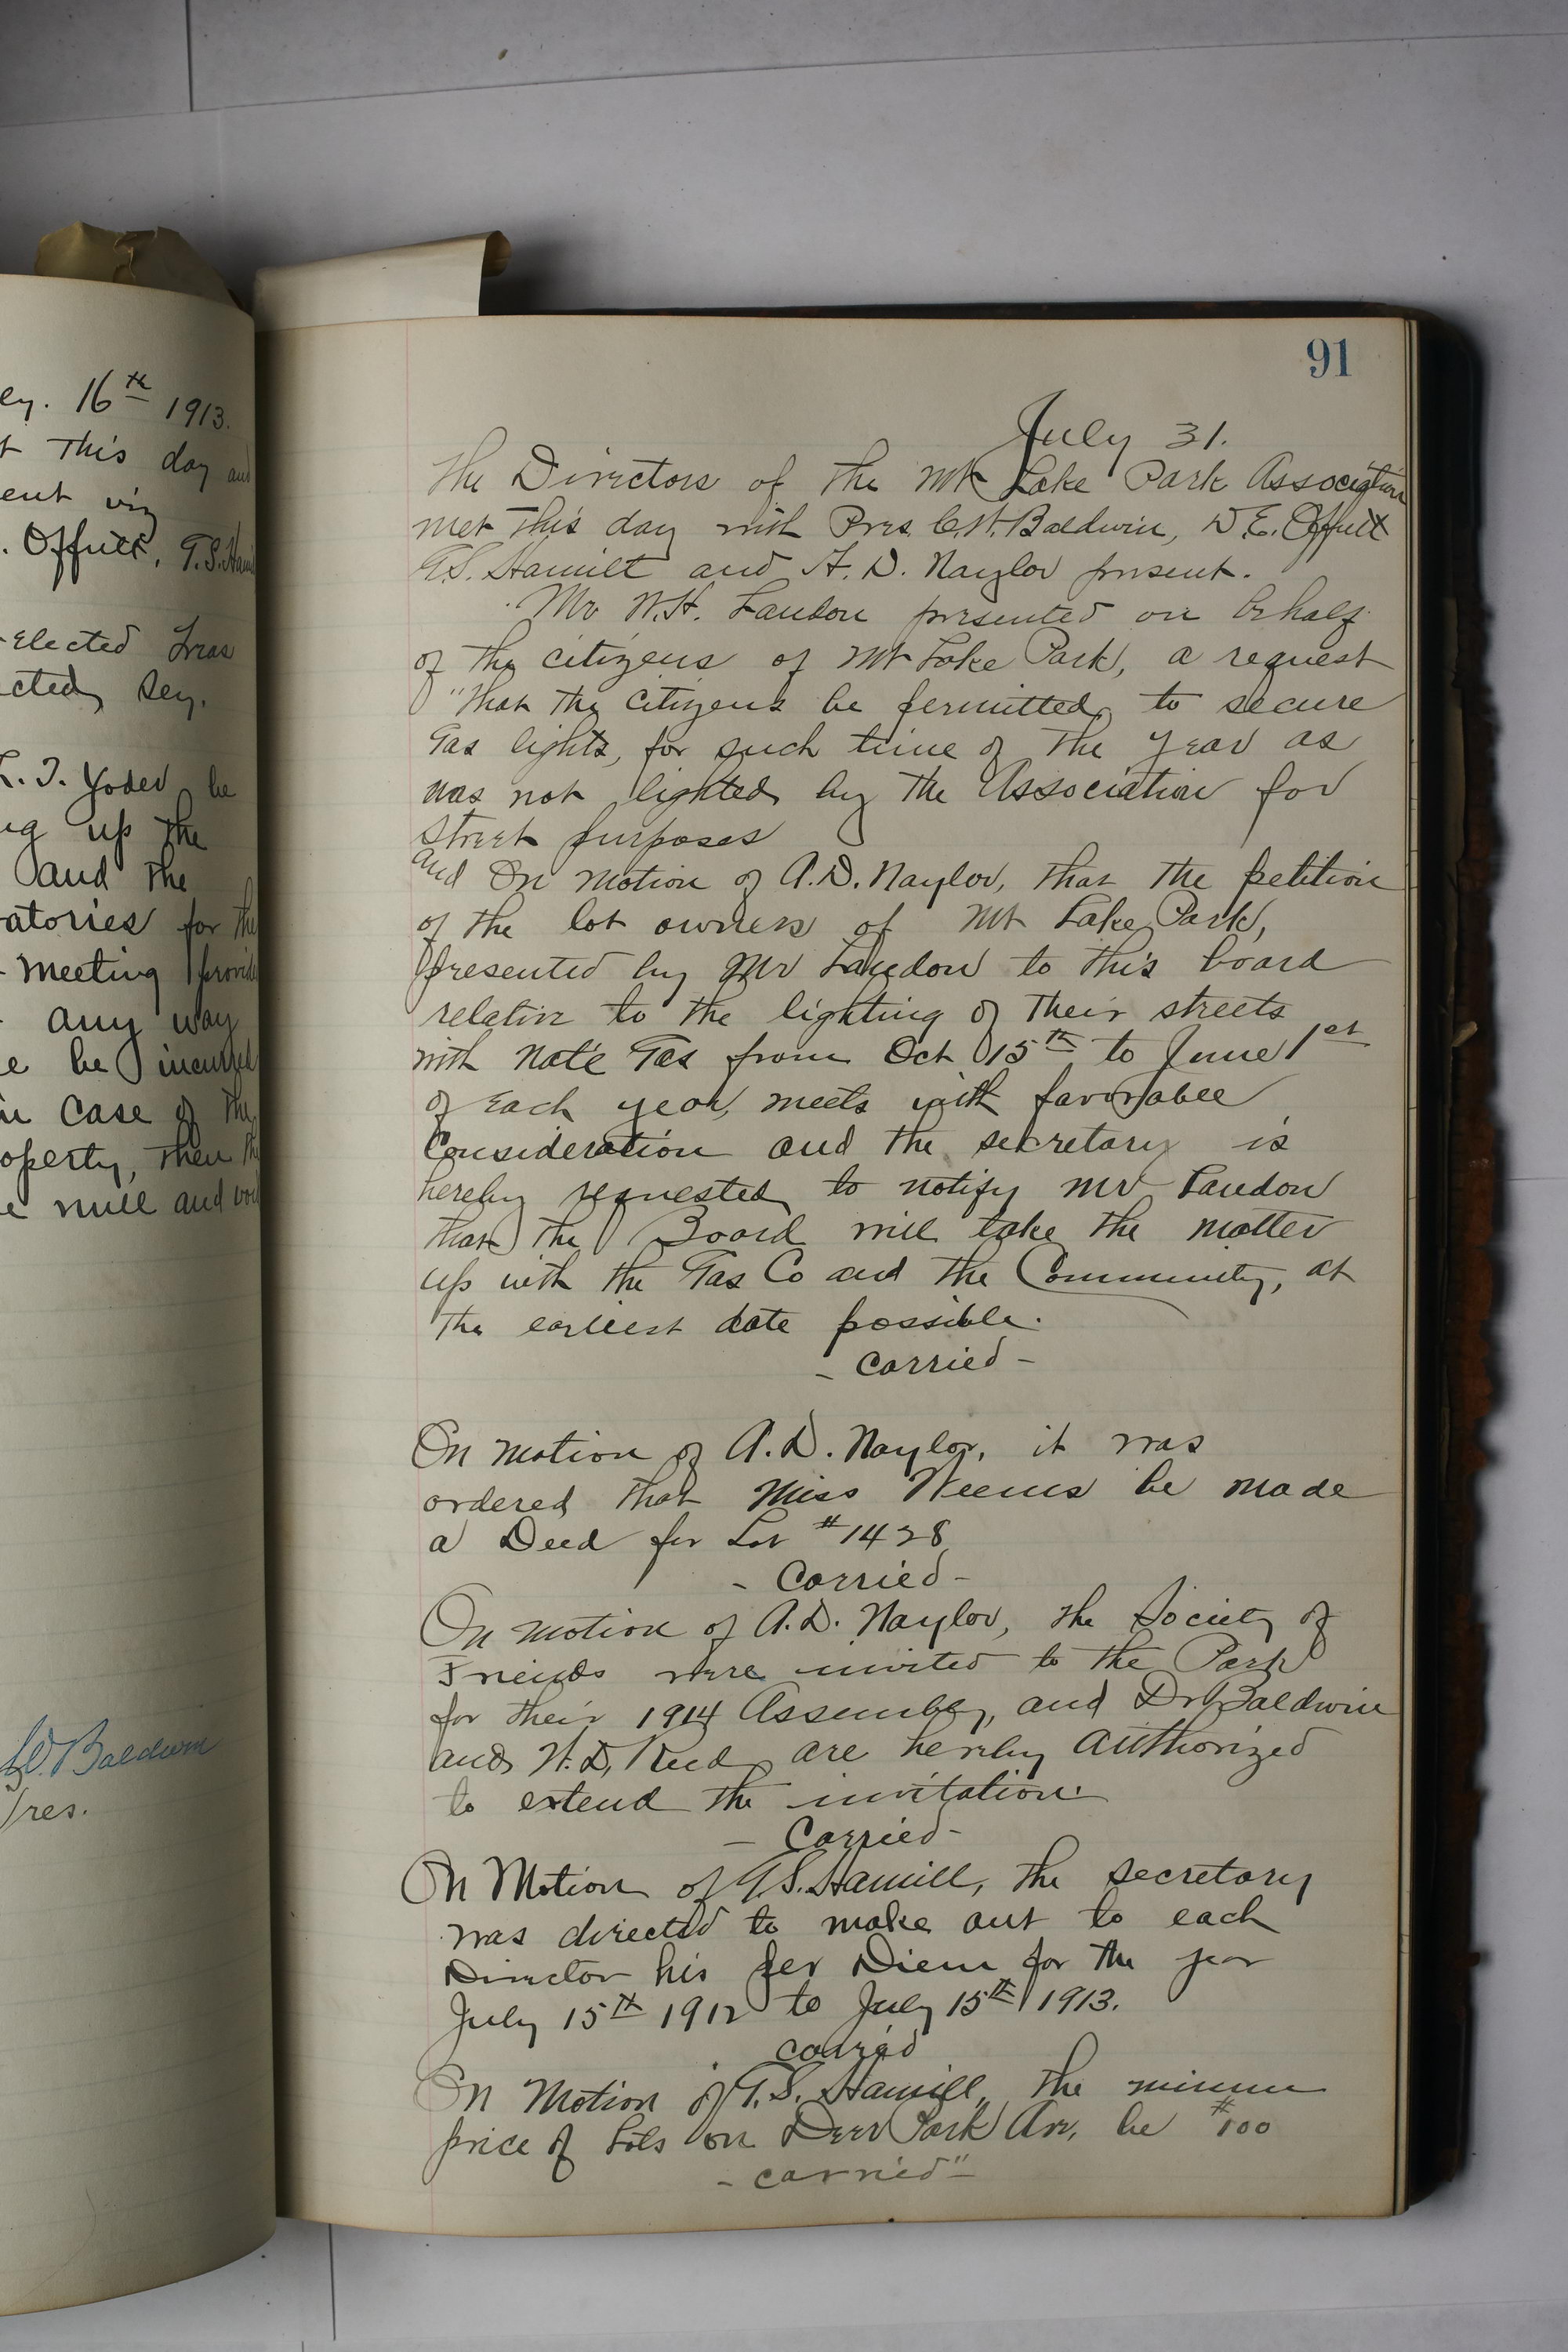 ey. 16th 1913.
t This day and
ent viz
. Offutt, T.S. Ham
-elected Treas
cted, Sey.
L. T. Yoder be
ng up the
and the
vatories for the
- meeting provide
- any way
e be incurred
in case of the
operty, then the
e null and void
W. Baldwin
Pres.
91
July 31.
The Directors of the Mt Lake Park Association
met this day with Pres. C.W. Baldwin, D.E. Offutt
G.S. Hamill and A. D. Naylor present.
Mr W.H. Laudon presented on behalf
of the citizens of Mt Lake Park, a request
"That the citizens be permitted, to secure
Gas lights, for such time of the year as
was not lighted by the Association for
street purposes
and On motion of A.D. Naylor, that the petition
of the lot owners of Mt Lake Park,
presented by Mr Laudon to this board
relative to the lighting of their streets
with Nat'e Gas from Oct 15th to June 1st
of each year, meets with favorabee
consideration and the secretary is
hereby requested to notify Mr Laudon
that the Board will take the matter
up with the Gas Co and the Community, at
the earliest date possible.
- Carried -
On motion of A.D. Naylor, it was
ordered that Miss Weems be made
a Deed for Lot #1428
- Carried -
On motion of A.D. Naylor, the Society of
Friends were invited to the Park
for their 1914 Assembly, and Dr Baldwin
and H.D. Reed are hereby authorized
to extend the invitation.
- Carried -
On Motion of G.S. Hamill, the secretary
was directed to make out to each
Director his per Diem for the year
July 15th 1912 to July 15th 1913.
Carried
On Motion of G.S. Hamill, the minum
price of Lots on Deer Park Av, be #100
- carried" -